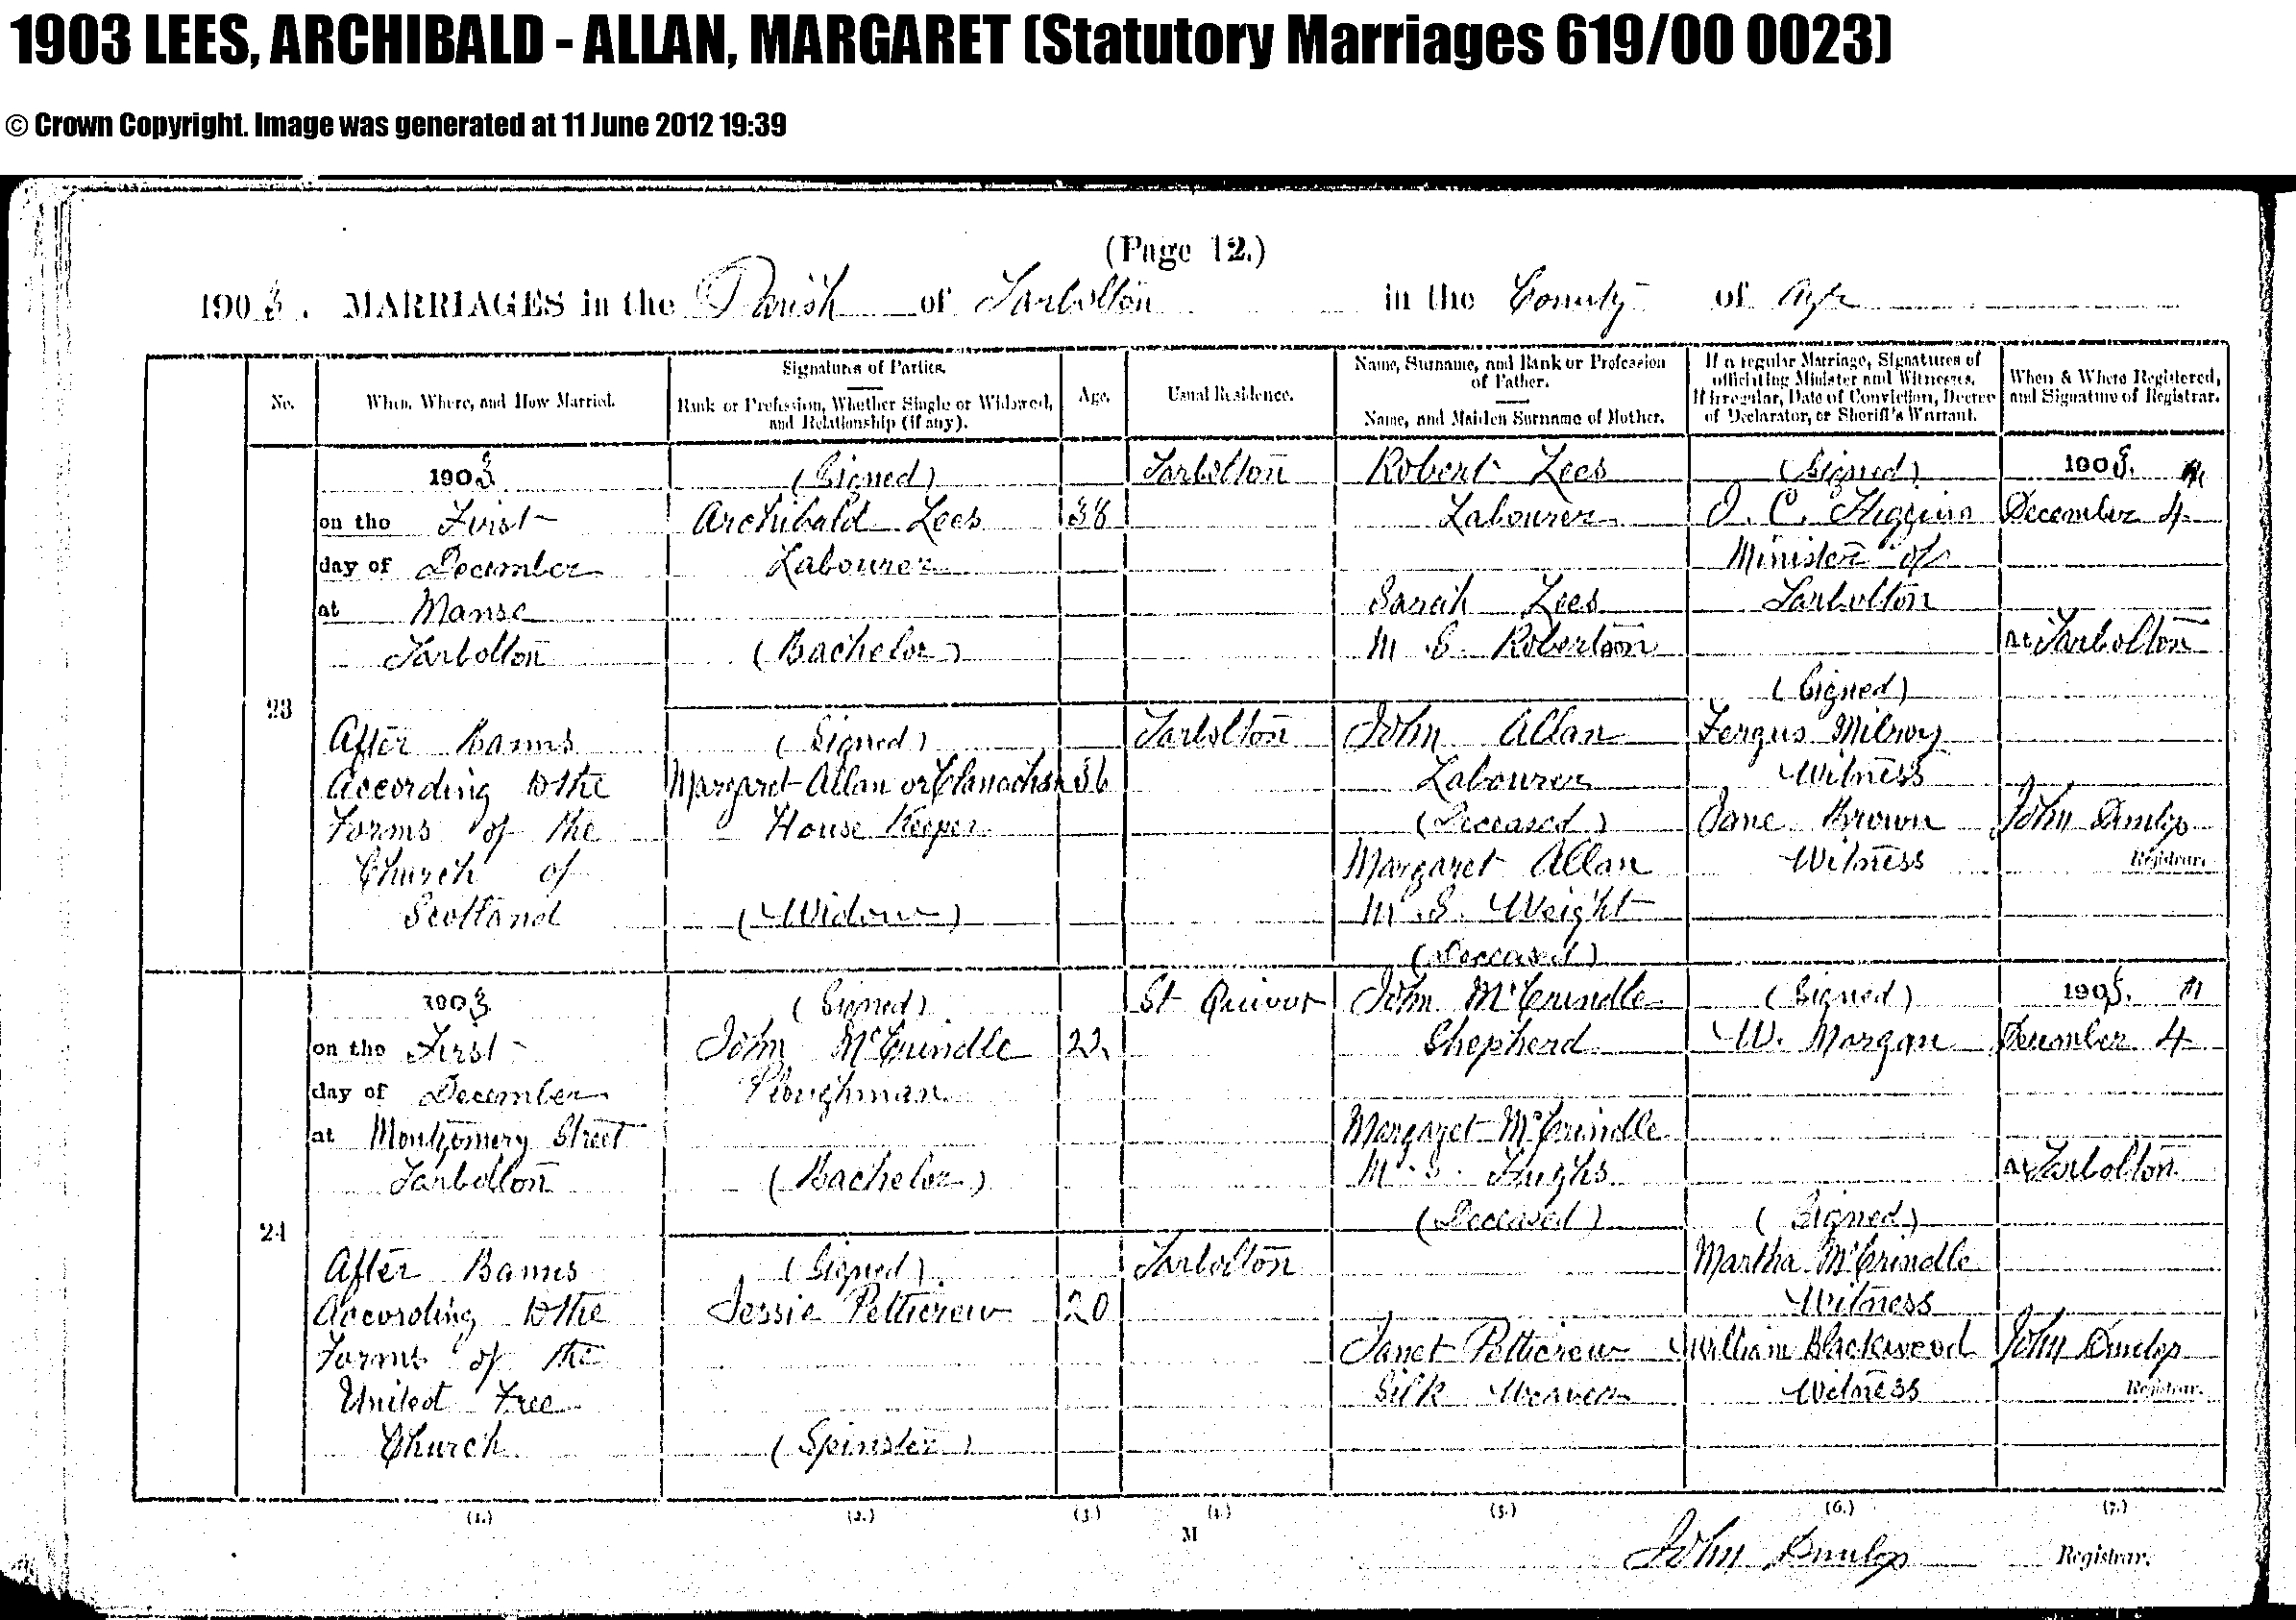 1903 LEES, ARCHIBALD - ALLAN, MARGARET (Statutory Marriages 619/00 0023)
© Crown Copyright. Image was generated at 11 June 2012 19:39
(Page 12.)
1903. MARRIAGES in the Parish of Tarbolton in the County of Ayr
No.
When, Where, and How Married.
Signatures of Parties.
Rank or Profession, Whether Single or Widowed,
and Relationship (if any).
Age.
Usual Residence.
Name, Surname, and Rank or Profession
of Father.
Name, and Maiden Surname of Mother.
If a regular Marriage, Signatures of
officiating Minister and Witnesses.
If irregular, Date of Conviction, Decree
of Declarator, or Sheriff's Warrant.
When & Where Registered,
and Signature of Registrar.
23
1903
on the First
day of December
at Manse
Tarbolton
After Banns
According to the
Forms of the
Church of
Scotland
(Signed)
Archibald Lees
Labourer
(Bachelor)
(Signed)
Margaret Allan or
House Keeper
(Widow)
38
36
Tarbolton
Tarbolton
Robert Lees
Labourer
Sarah Lees
M. S. Robertson
John Allan
Labourer
(Deceased)
Margaret Allan
M. S. Weight
(Deceased)
(Signed)
J. C. Higgins
Minister of
Tarbolton
(Signed)
Fergus Milroy
Witness
Jane Brown
Witness
1903.
December 4
At Tarbolton
John Dunlop
Registrar.
24
1903
on the First
day of December
at Montgomery Street
Tarbolton
After Banns
According to the
Forms of the
United Free
Church
(Signed)
John McCrindle
Ploughman
(Bachelor)
(Signed)
Jessie Petticrew
(Spinster)
22
20
St Quivox
Tarbolton
John McCrindle
Shepherd
Margaret McCrindle
M. S. Hughs
(Deceased)
Janet Petticrew
Silk Weaver
(Signed)
W. Morgan
(Signed)
Martha McCrindle
Witness
William Blackwood
Witness
1903.
December 4
At Tarbolton
John Dunlop
Registrar.
(1.) (2.) (3.) (4.) (5.) (6.) (7.)
M
John Dunlop Registrar.